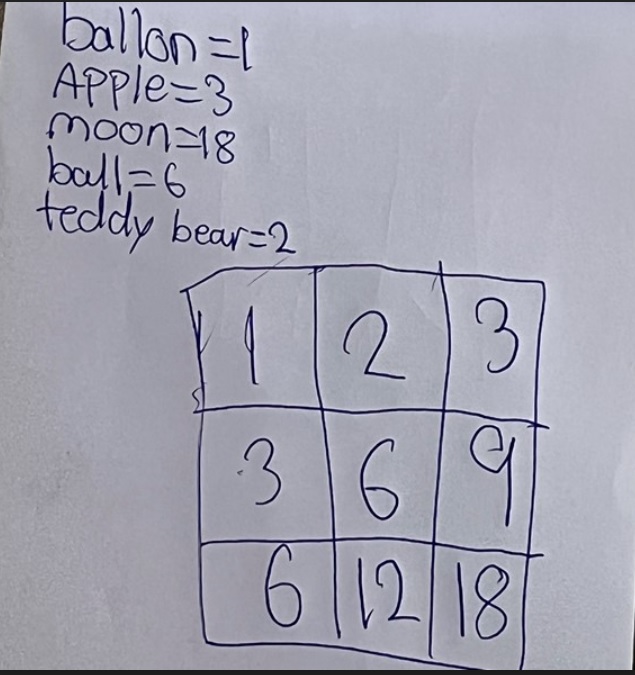 ballon=1
Apple=3
moon=18
ball=6
teddy bear=2
1 2 3
3 6 9
6 12 18